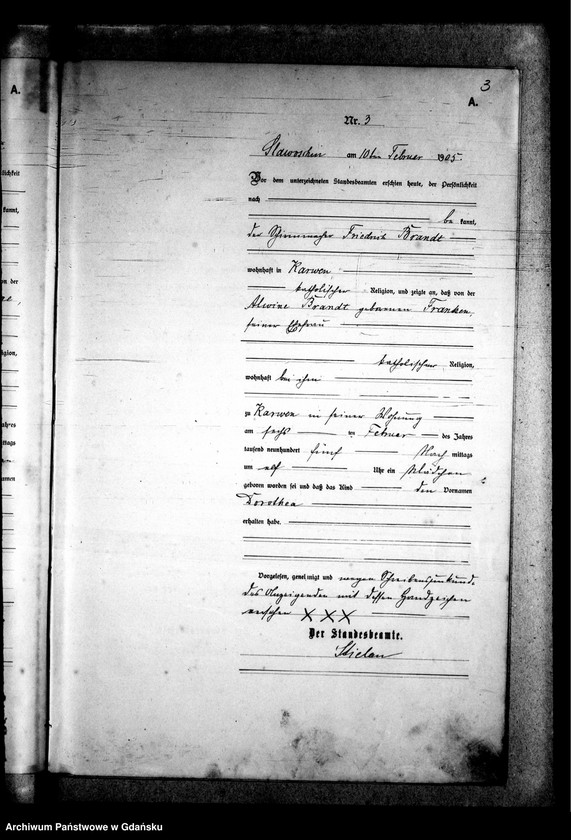 3
A.
A.
Nr. 3
Slawoschin am 10ten Februar 1905.
Vor dem unterzeichneten Standesbeamten erschien heute, der Persönlichkeit
nach
be kannt,
der Friedrich Brandt
wohnhaft in Karwen
katholischer Religion, und zeigte an, daß von der
Alwine Brandt geborenen Franken,
seiner Ehefrau
katholischer Religion,
wohnhaft bei ihm
zu Karwen in seiner Wohnung
am sechs ten Februar des Jahres
tausend neunhundert fünf Nach mittags
um elf Uhr ein Mädchen
geboren worden sei und daß das Kind den Vornamen
Dorothea
erhalten habe.
Vorgelesen, genehmigt und wegen Schreibensunkunde
des Anzeigenden mit dessen Handzeichen
versehen XXX
Der Standesbeamte.
Archiwum Państwowe w Gdańsku